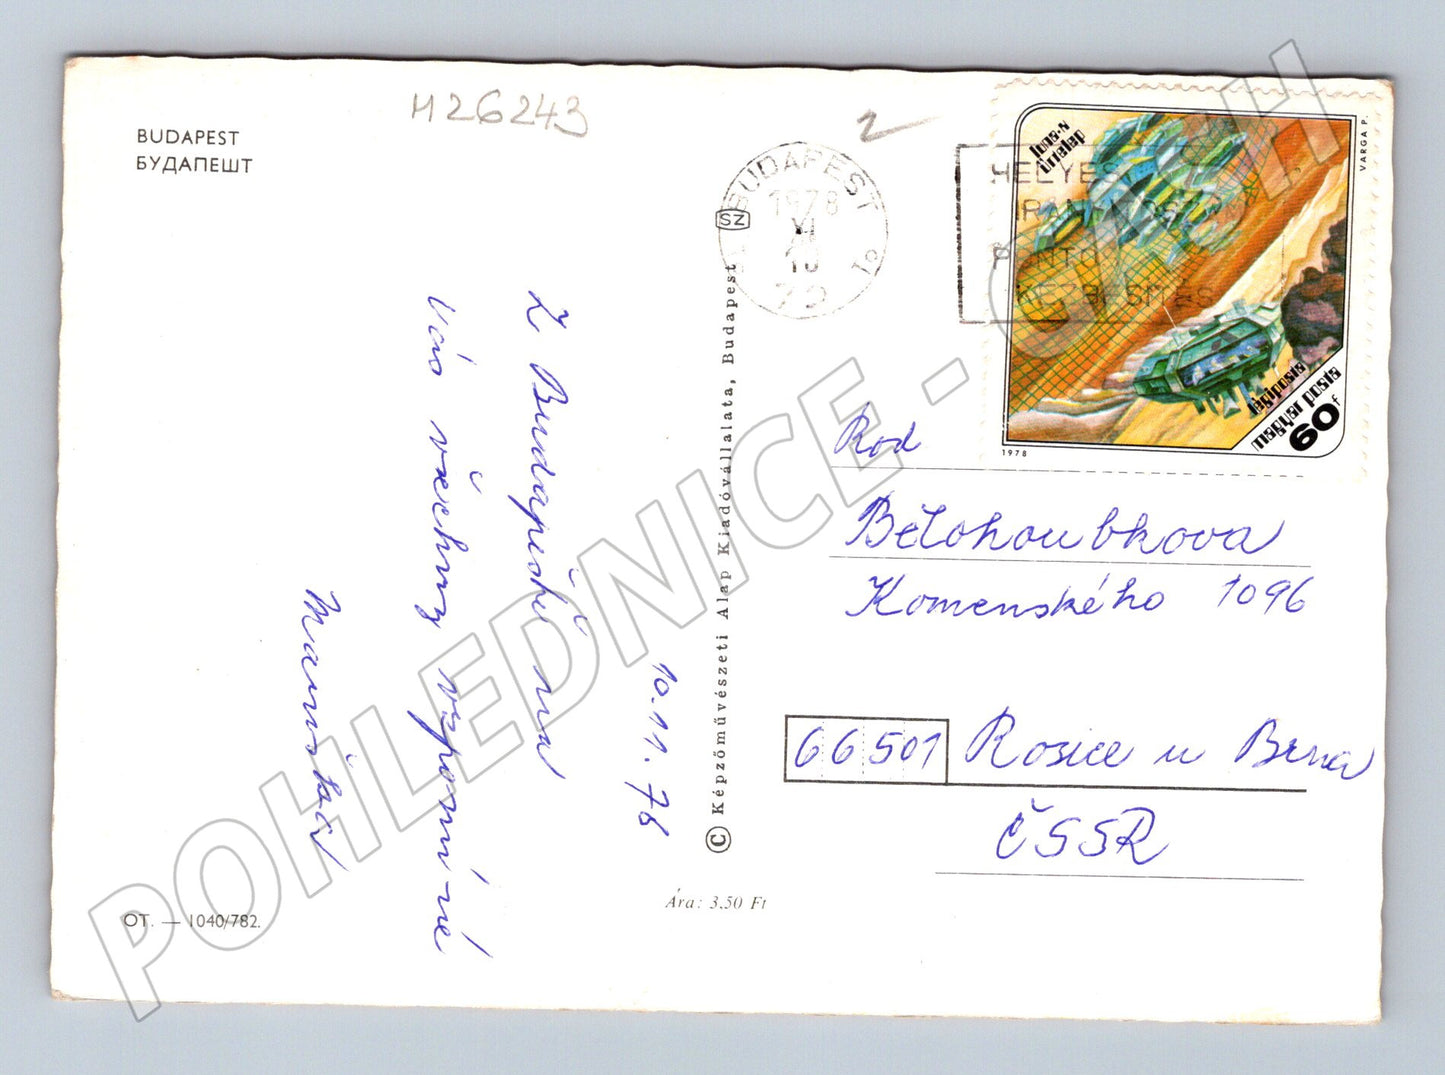 BUDAPEST
БУДАПЕШТ
M26243
2
BUDAPEST
1978
XI
10
72
SZ
HELYES
IRÁNY
PONTOS
KÉZBESÍTÉS
űrtelep
VARGA P.
légiposta
magyar posta
60f
1978
10.11.78
Z Budapešti na
Vás všechny vzpomíná
OT. — 1040/782.
Ára: 3,50 Ft
© Képzőművészeti Alap Kiadóvállalata, Budapest
Rod
Bělohoubkova
Komenského 1096
66501 Rosice u Brna
ČSSR
POHLEDNICE - CZECH